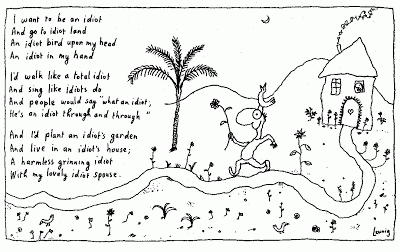 I want to be an idiot
And go to idiot land
An idiot bird upon my head
An idiot in my hand
I'd walk like a total idiot
And sing like idiots do
And people would say "what an idiot;
He's an idiot through and through"
And I'd plant an idiot's garden
And live in an idiot's house;
A harmless grinning idiot
With my lovely idiot spouse.
Leunig